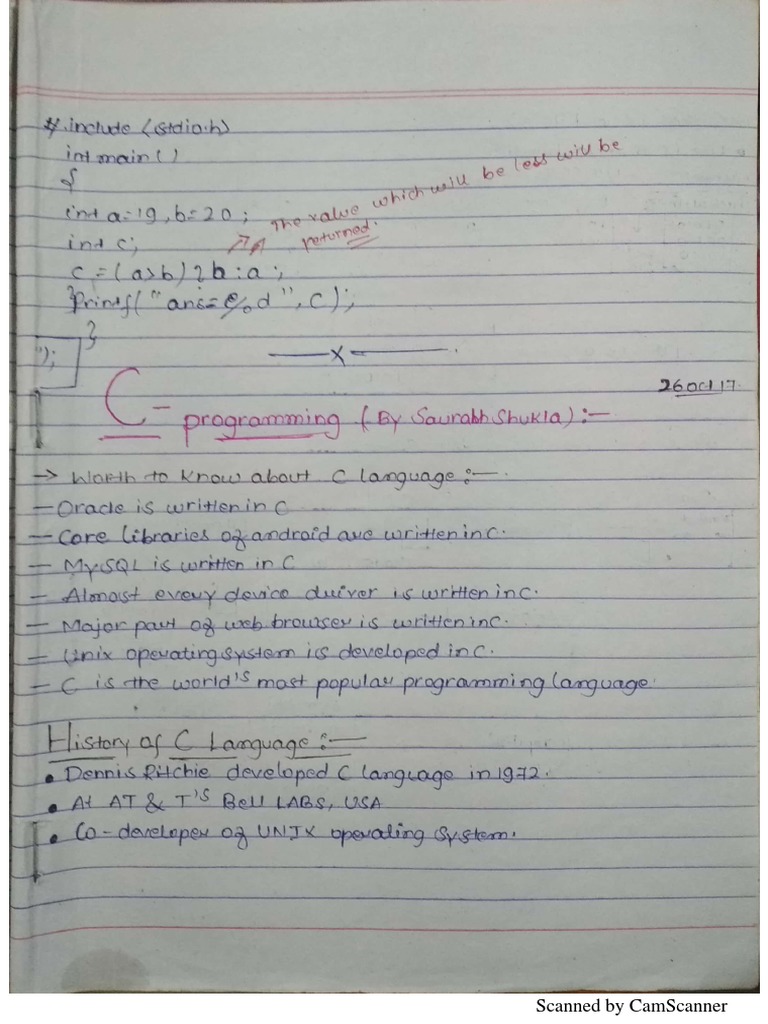 #include <stdio.h>
int main()
{
int a=19, b=20;
The value which will be less will be
returned.
int c;
c = (a>b) ? b : a ;
}printf("ans=%d", c);
}
");
x
26 Oct 17
C - programming (By Saurabh Shukla) :-
→ Worth to know about C language :-
- Oracle is written in C
- Core libraries of android are written in C.
- MySQL is written in C
- Almost every device driver is written in C.
- Major part of web browser is written in C.
- Unix operating system is developed in C.
- C is the world's most popular programming language.
History of C Language :-
• Dennis Ritchie developed C language in 1972.
• At AT & T'S Bell LABS, USA
• Co-developer of UNIX operating system.
Scanned by CamScanner